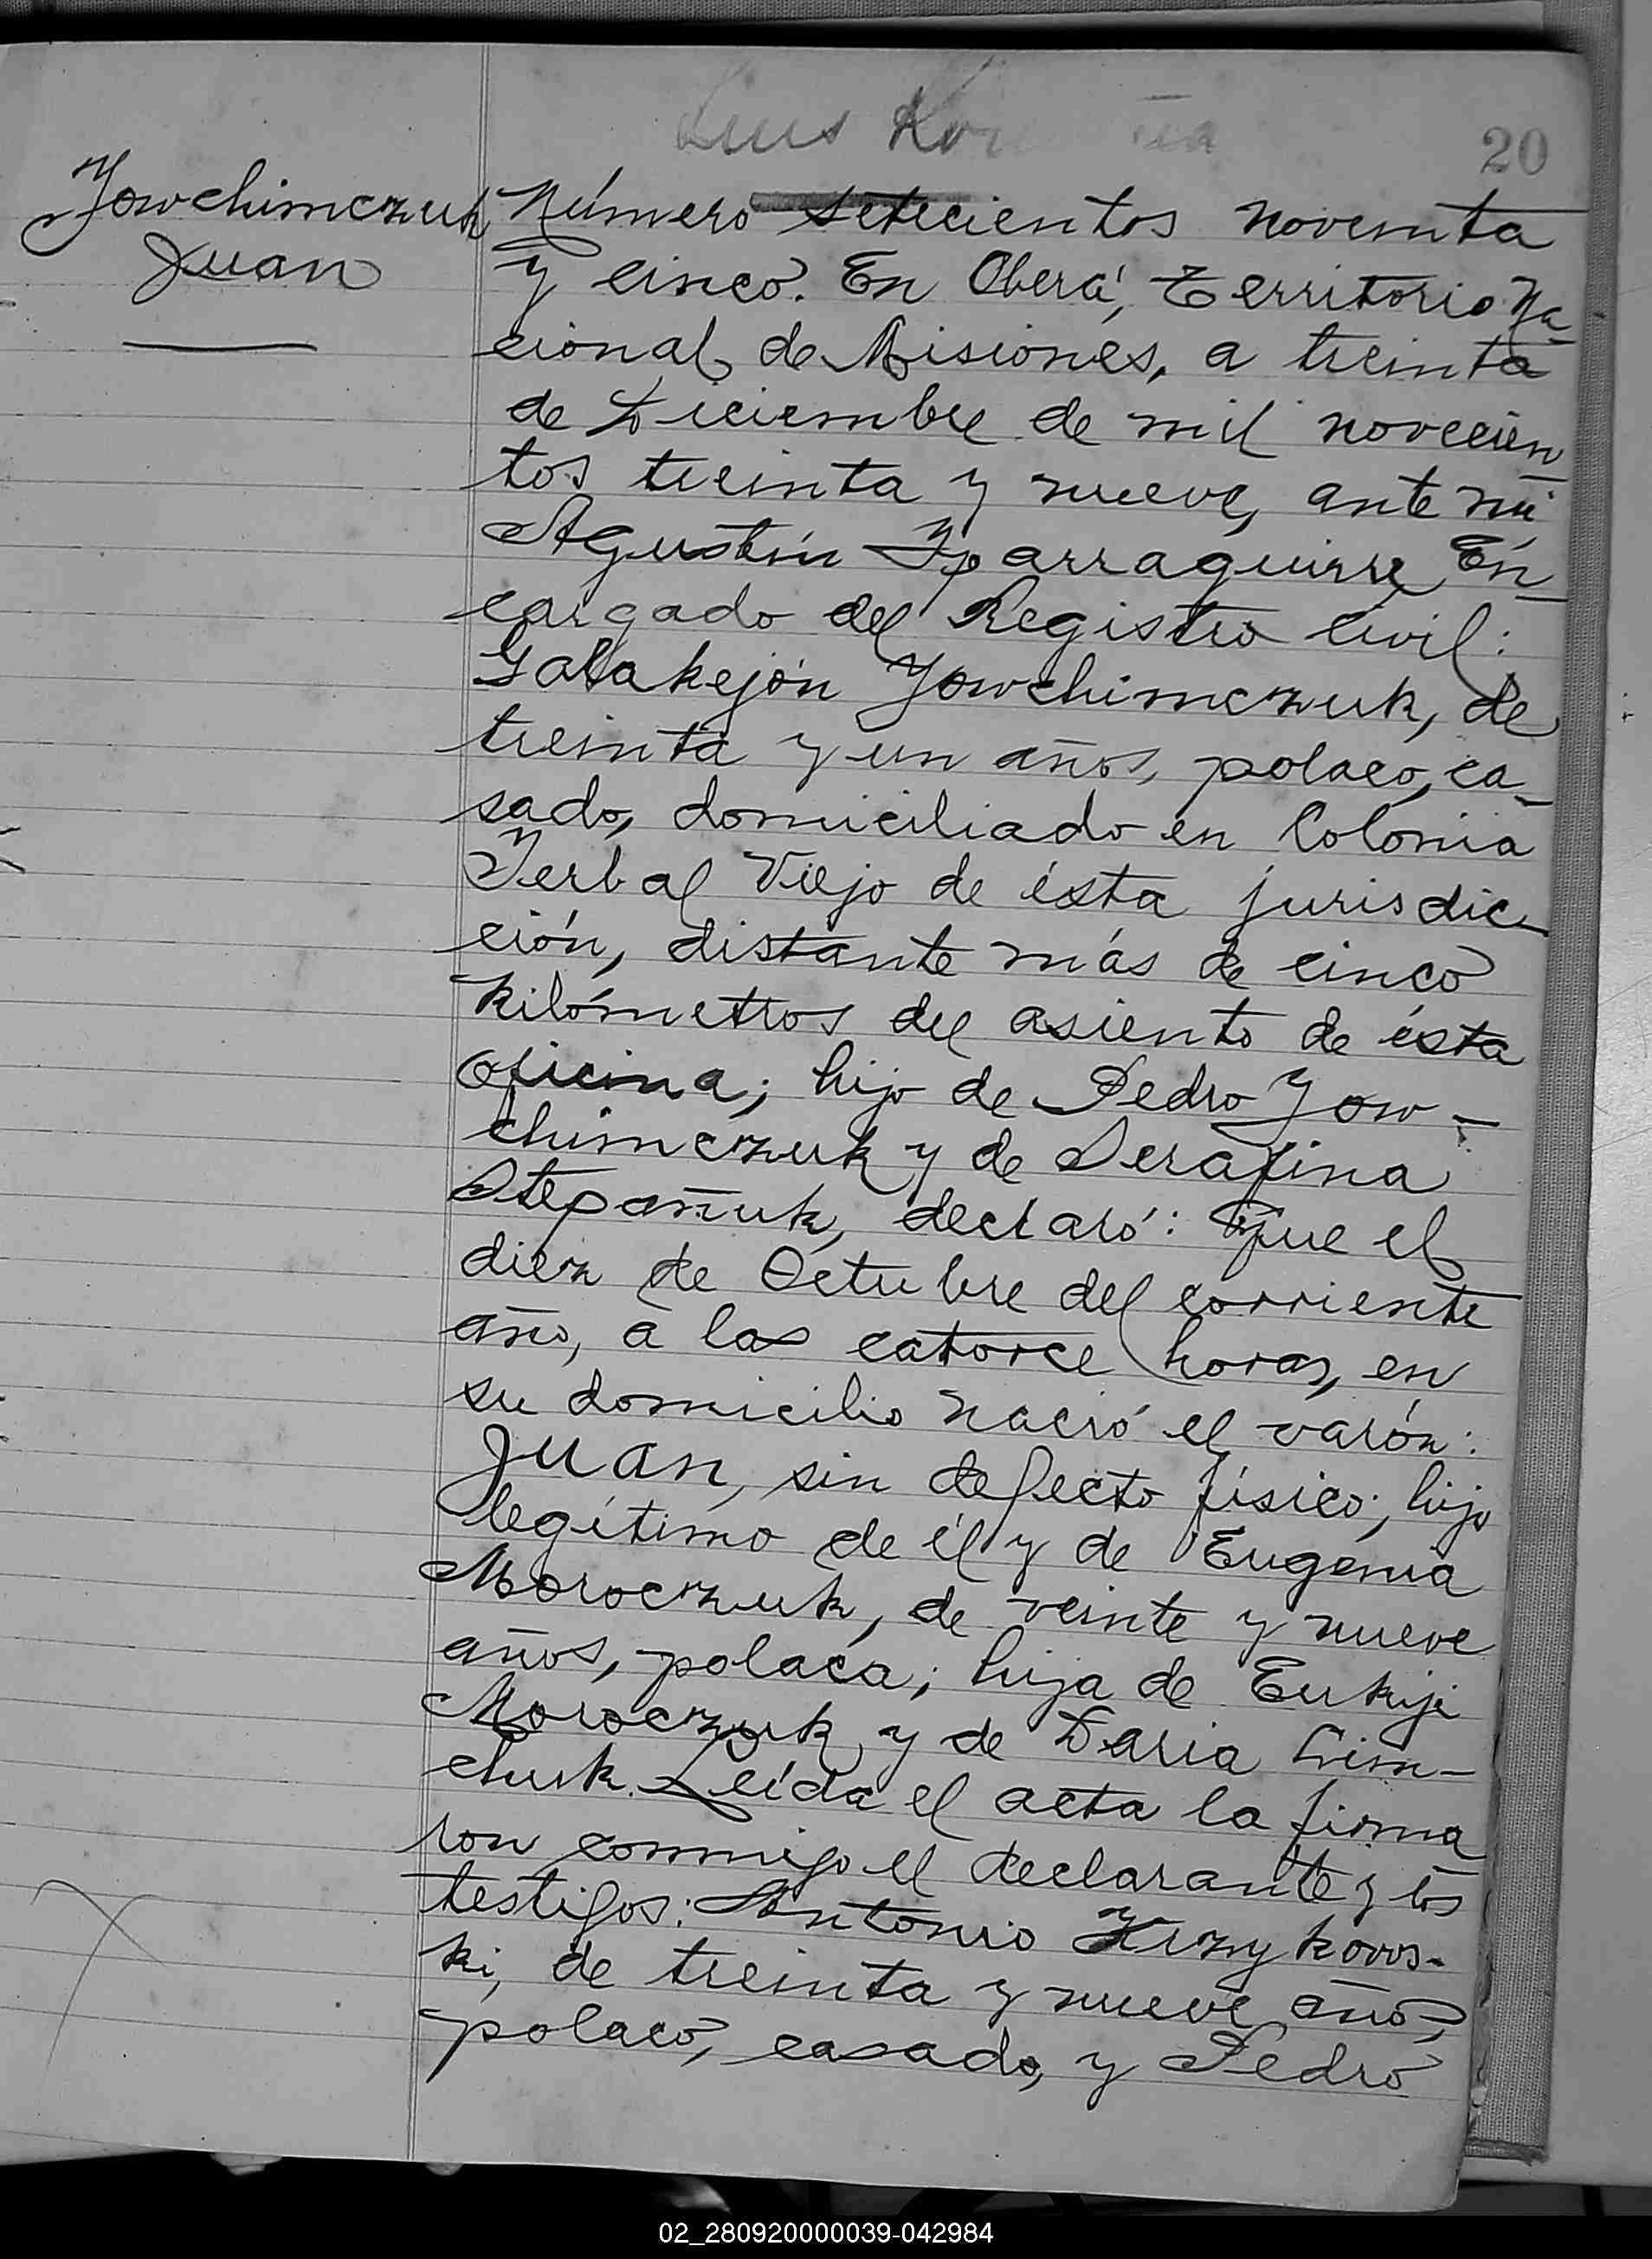 Luis
20
Jowchimczuk
Juan
Número setecientos noventa
y cinco. En Oberá, Territorio Na-
cional de Misiones, a treinta
de Diciembre de mil novecien
tos treinta y nueve, ante mí
Agustín Yparraguirre En-
cargado del Registro Civil:
Galakejón Jowchimczuk, de
treinta y un años, polaco, ca-
sado, domiciliado en Colonia
Yerbal Viejo de ésta jurisdic-
ción, distante más de cinco
kilómetros del asiento de ésta
oficina; hijo de Pedro Jow-
chimczuk y de Serafina
Stepañuk, declaró: Que el
diez de Octubre del corriente
año, a las catorce horas, en
su domicilio nació el varón:
Juan, sin defecto físico; hijo
legítimo de él y de Eugenia
Moroczuk, de veinte y nueve
años, polaca; hija de Eukiji
Moroczuk y de Daria Lim-
chuk. Leída el acta la firma
ron conmigo el declarante y los
testigos: Antonio Krzykows-
ki, de treinta y nueve años,
polaco, casado, y Pedro
02_280920000039-042984